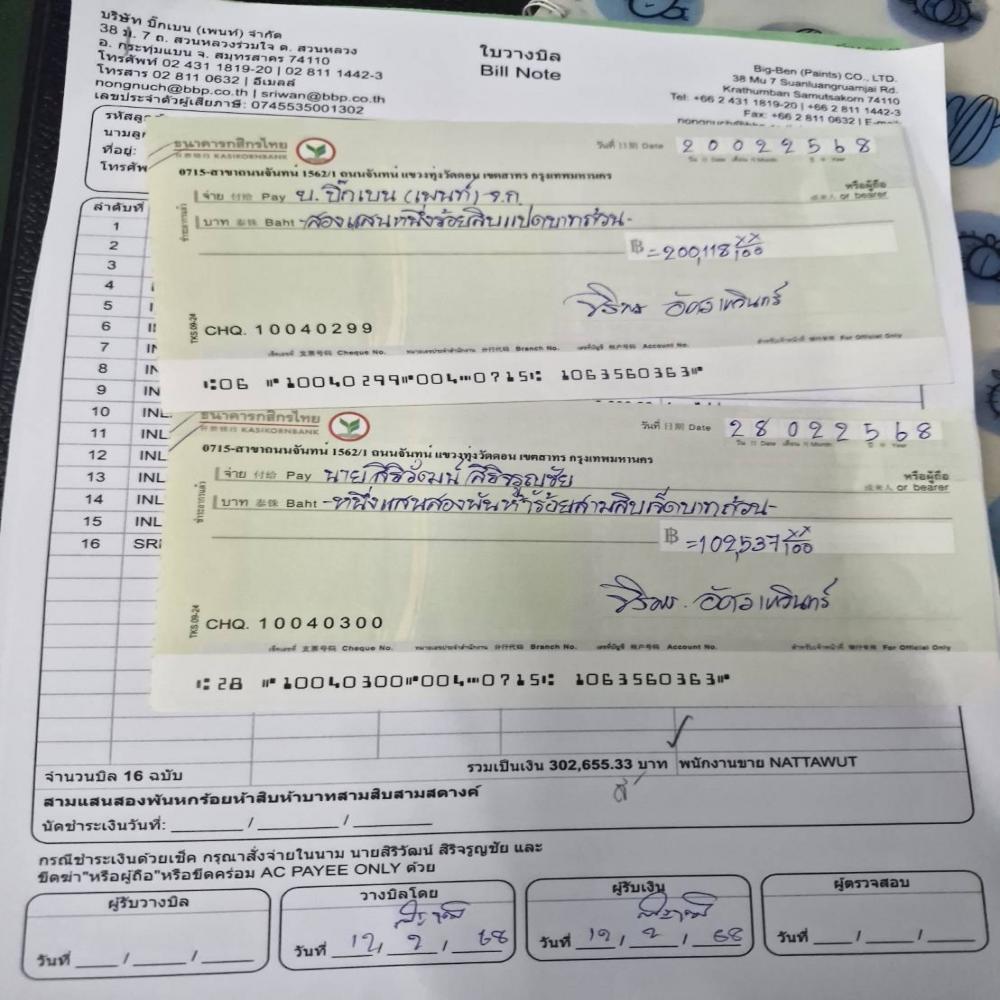 บริษัท บิ๊กเบน (เพนท์) จำกัด
38 ม. 7 ถ. สวนหลวงร่วมใจ ต. สวนหลวง
อ. กระทุ่มแบน จ. สมุทรสาคร 74110
โทรศัพท์ 02 431 1819-20 | 02 811 1442-3
โทรสาร 02 811 0632 | อีเมลล์
nongnuch@bbp.co.th | sriwan@bbp.co.th
เลขประจำตัวผู้เสียภาษี: 0745535001302
ใบวางบิล
Bill Note
Big-Ben (Paints) CO., LTD.
38 Mu 7 Suanluangruamjai Rd.
Krathumban Samutsakorn 74110
Tel: +66 2 431 1819-20 | +66 2 811 1442-3
Fax: +66 2 811 0632 |
รหัสลูก
นามลูก
ที่อยู่:
โทรศัพ
ลำดับที่
1
2
3
4
5
6
7 IN
8 IN
9 IN
10 INL
11 INL
12 INL
13 INL
14 INL
15 INL
16 SRI
ธนาคารกสิกรไทย
泰华银行 KASIKORNBANK
วันที่ 日期 Date 20022568
0715-สาขาถนนจันทน์ 1562/1 ถนนจันทน์ แขวงทุ่งวัดดอน เขตสาทร กรุงเทพมหานคร
จ่าย 付给 Pay บ.บิ๊กเบน (เพนท์) จ.ก. หรือผู้ถือ
或来人 or bearer
บาท 泰铢 Baht -สองแสนหนึ่งร้อยสิบแปดบาทถ้วน-
฿ =200,118 xx/100
TKS.09-24
CHQ. 10040299
เช็คเลขที่ 支票号码 Cheque No. หมายเลขประจำสำนักงาน 分行代码 Branch No. เลขที่บัญชี 账户号码 Account No. สำหรับเจ้าหน้าที่ 银行专用 For Official Only
⑆06 ⑈10040299⑈004⑉0715⑆ 1063560363⑈
ธนาคารกสิกรไทย
泰华银行 KASIKORNBANK
วันที่ 日期 Date 28022568
0715-สาขาถนนจันทน์ 1562/1 ถนนจันทน์ แขวงทุ่งวัดดอน เขตสาทร กรุงเทพมหานคร
จ่าย 付给 Pay นายสิริวัฒน์ สิริจรูญชัย หรือผู้ถือ
或来人 or bearer
บาท 泰铢 Baht -หนึ่งแสนสองพันห้าร้อยสามสิบเจ็ดบาทถ้วน-
฿ =102,537 xx/100
TKS.09-24
CHQ. 10040300
เช็คเลขที่ 支票号码 Cheque No. หมายเลขประจำสำนักงาน 分行代码 Branch No. เลขที่บัญชี 账户号码 Account No. สำหรับเจ้าหน้าที่ 银行专用 For Official Only
⑆28 ⑈10040300⑈004⑉0715⑆ 1063560363⑈
จำนวนบิล 16 ฉบับ รวมเป็นเงิน 302,655.33 บาท พนักงานขาย NATTAWUT
สามแสนสองพันหกร้อยห้าสิบห้าบาทสามสิบสามสตางค์
นัดชำระเงินวันที่: ______ / ______ / ______
กรณีชำระเงินด้วยเช็ค กรุณาสั่งจ่ายในนาม นายสิริวัฒน์ สิริจรูญชัย และ
ขีดฆ่า"หรือผู้ถือ"หรือขีดคร่อม AC PAYEE ONLY ด้วย
ผู้รับวางบิล วางบิลโดย ผู้รับเงิน ผู้ตรวจสอบ
วันที่ ___ / ___ / ___ วันที่ 12 / 2 / 68 วันที่ 12 / 2 / 68 วันที่ ___ / ___ / ___